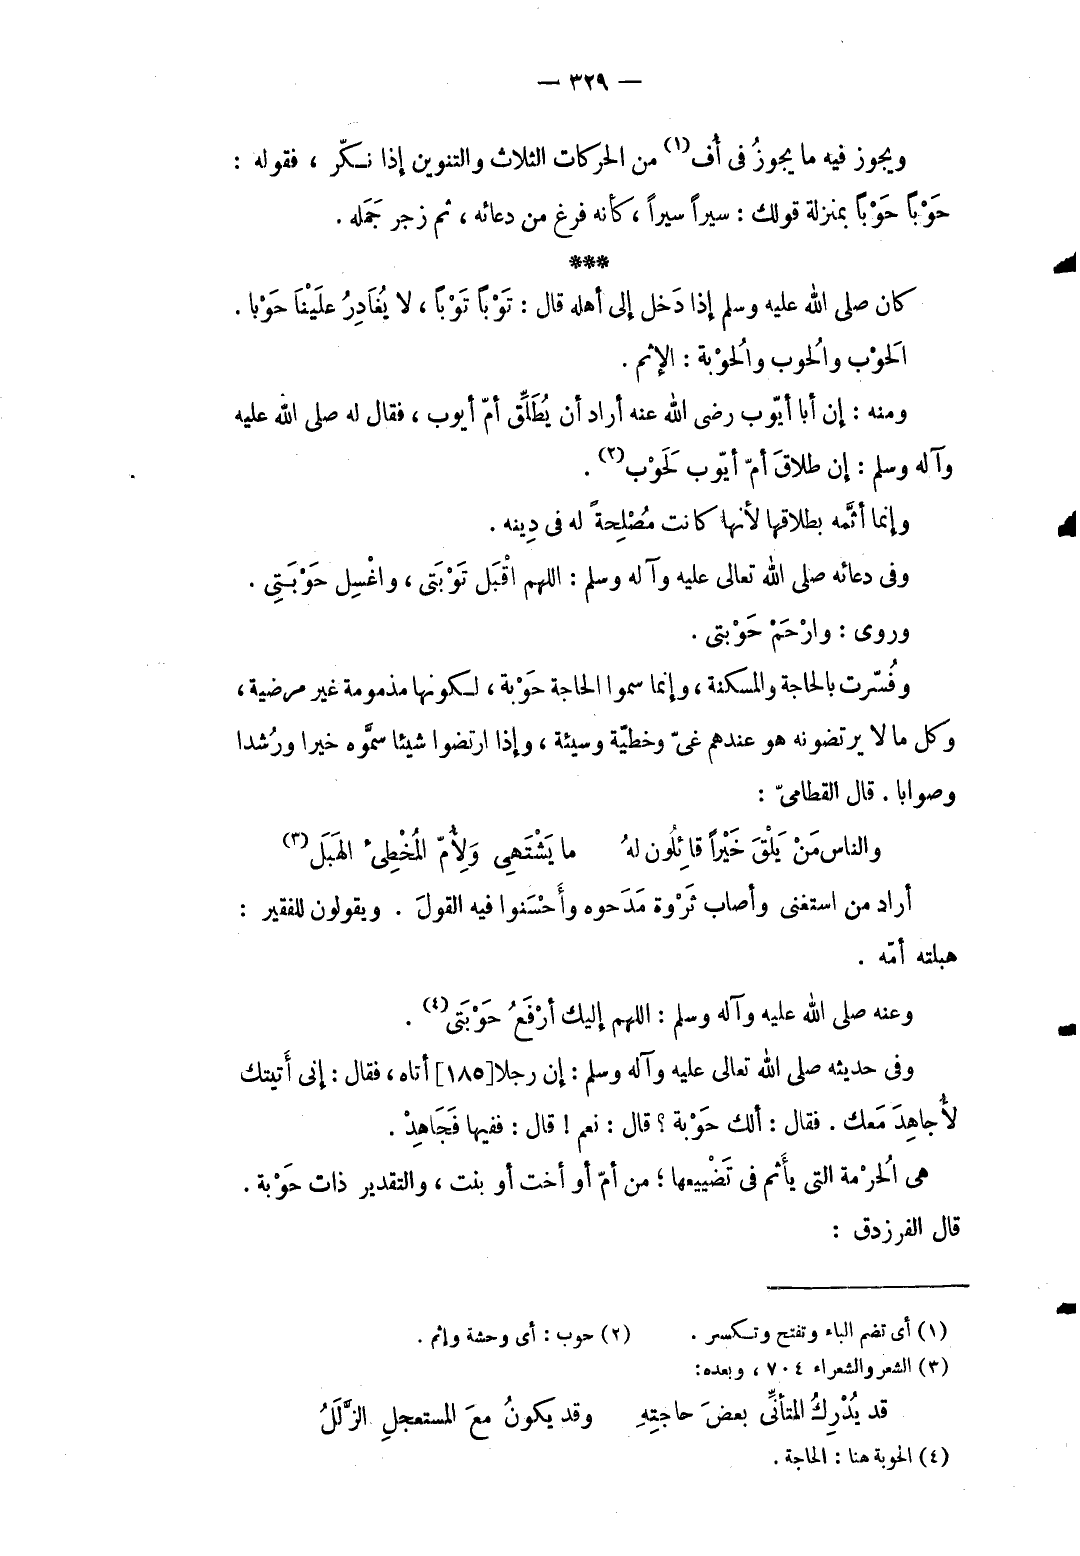 — ٣٢٩ —
ويجوز فيه ما يجوزُ فى أف(١) من الحركات الثلاث والتنوين إذا نكّر ، فقوله :
حَوْباً حَوْباً بمنزلة قولك : سيراً سيراً ، كأنه فرغ من دعائه ، ثم زجر جَمَله .
***
كان صلى الله عليه وسلم إذا دَخل إلى أهله قال : تَوْباً تَوْباً ، لا يُغَادِرُ علَيْنَا حَوْبا .
الَحوْب والُحوب والُحوْبة : الإثم .
ومنه : إن أبا أيّوب رضى الله عنه أراد أن يُطَلِّق أمّ أيوب ، فقال له صلى الله عليه
وآله وسلم : إن طلاقَ أمّ أيّوب لَحَوْب(٢) .
وإنما أثَّمه بطلاقها لأنها كانت مُصْلِحةً له فى دِينه .
وفى دعائه صلى الله تعالى عليه وآله وسلم : اللهم اقْبَل تَوْبَتى ، واغْسِل حَوْبَتِي .
وروى : وارْحَمْ حَوْبتى .
وفُسّرت بالحاجة والمسكنة ، وإنما سموا الحاجة حَوْبة ، لكونها مذمومة غير مرضية ،
وكل ما لا يرتضونه هو عندهم غىّ وخطيّة وسيئة ، وإذا ارتضوا شيئا سمَّوه خيرا ورُشدا
وصوابا . قال القطامىّ :
والناس مَنْ يَلْقَ خَيْراً قائِلُون لهُ ما يَشْتَهِى وَلِأُمّ المُخْطِىُ الهَبَل(٣)
أراد من استغنى وأصاب ثَرْوة مَدَحوه وأَحْسَنوا فيه القولَ . ويقولون للفقير :
هبلته أمّه .
وعنه صلى الله عليه وآله وسلم : اللهم إليك أرْفَعُ حَوْبَتى(٤) .
وفى حديثه صلى الله تعالى عليه وآله وسلم : إن رجلا[١٨٥] أتاه ، فقال : إنى أَتيتك
لأُجاهِدَ مَعك . فقال : ألك حَوْبة ؟ قال : نعم ! قال : ففيها فَجَاهِدْ .
هى الُحرْمة التى يأَثم فى تَضْييعها ؛ من أمّ أو أخت أو بنت ، والتقدير ذات حَوْبة .
قال الفرزدق :
(١) أى تضم الباء وتفتح وتكسر . (٢) حوب : أى وحشة وإثم .
(٣) الشعر والشعراء ٧٠٤ ، وبعده:
قد يُدْرِكُ المتأنِّى بعضَ حاجتِهِ وقد يكونُ معَ المستعجلِ الزَّلَلُ
(٤) الحوبة هنا : الحاجة .